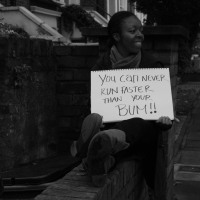 YOU CAN NEVER
RUN FASTER
THAN YOUR
BUM!!